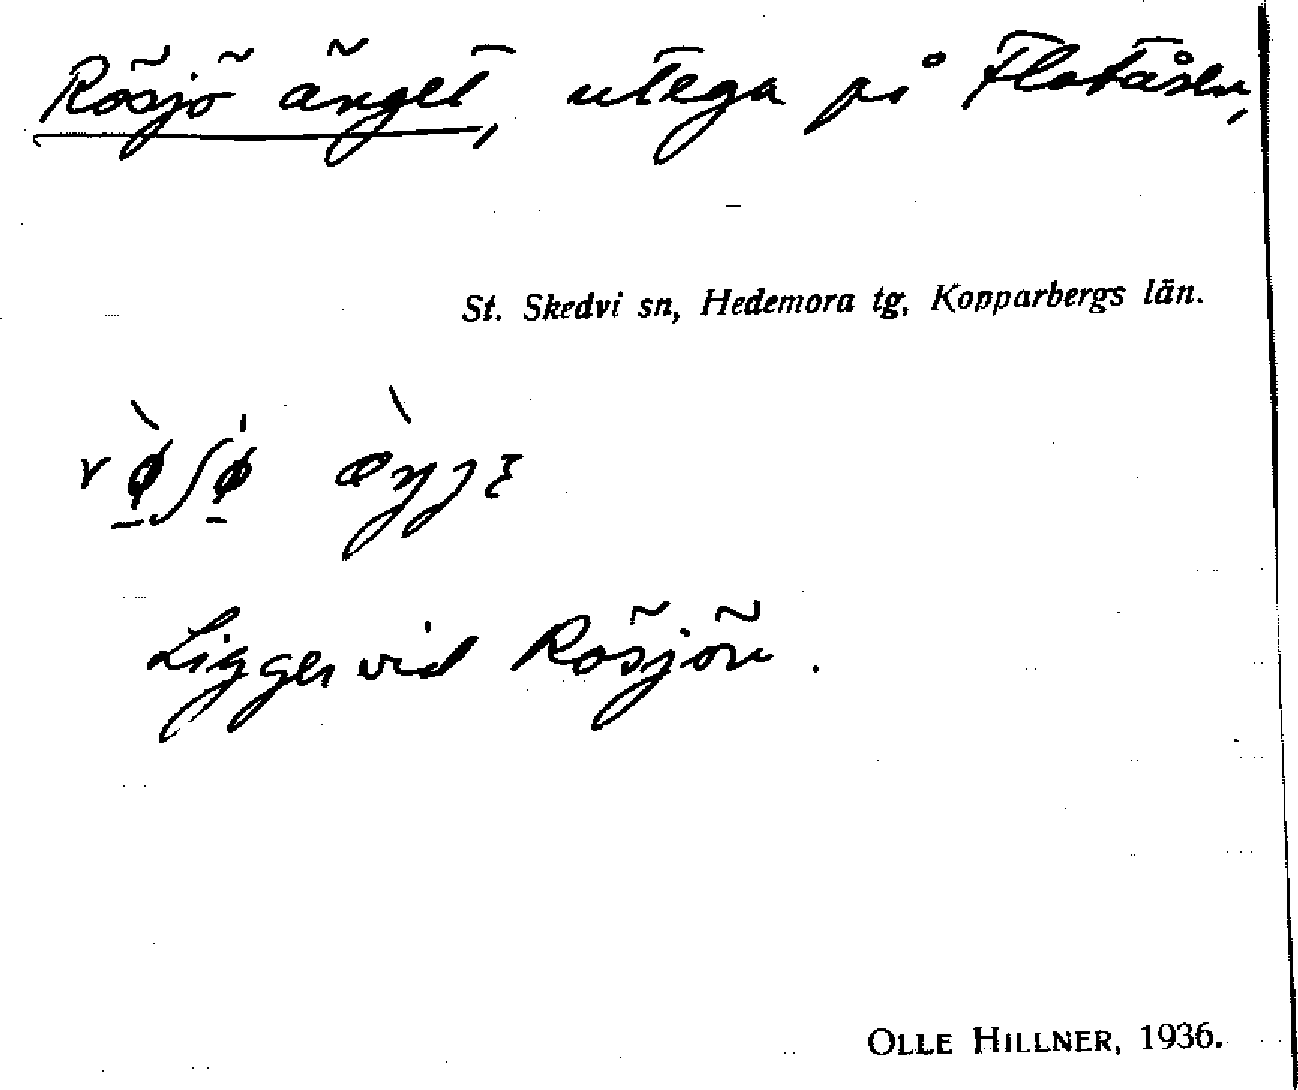 Rösjö änget, utega på Flatåsen,
St. Skedvi sn, Hedemora tg, Kopparbergs län.
Ligger vid Rösjön.
OLLE HILLNER, 1936.